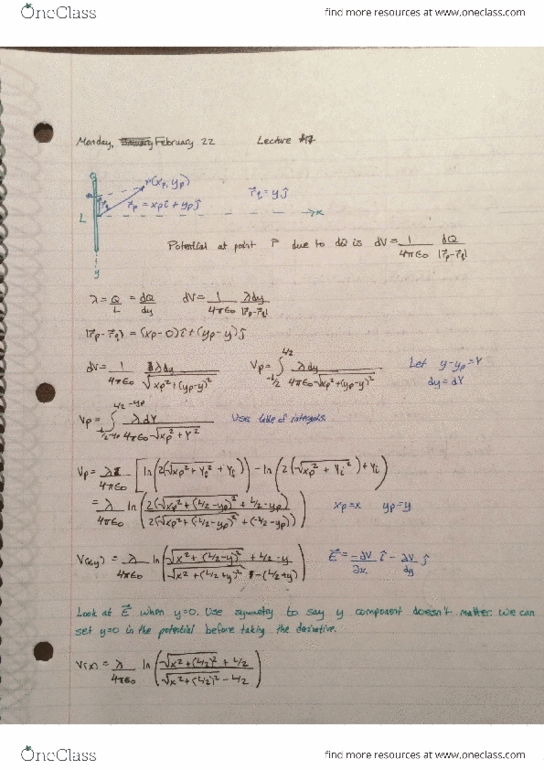 OneClass find more resources at www.oneclass.com
Monday, February 22 Lecture #17
r(xp, yp)
r⃗p = xpî + ypĵ r⃗q = yĵ
L x
y
Potential at point P due to dQ is dV = 1/4πϵ0 dQ/|r⃗p-r⃗q|
λ = Q/L = dQ/dy dV = 1/4πϵ0 λdy/|r⃗p-r⃗q|
|r⃗p-r⃗q| = (xp-0)î + (yp-y)ĵ
dV = 1/4πϵ0 λdy/√xp²+(yp-y)² Vp = ∫-L/2^L/2 λdy/4πϵ0√xp²+(yp-y)² Let y-yp=Y
dy=dY
Vp = ∫-L/2-yp^L/2-yp λdY/4πϵ0√xp²+Y² Uses table of integrals.
Vp = λ/4πϵ0 [ln(2(√xp²+Yi²+Yi)) - ln(2(√xp²+Yi²)+Yi)
= λ/4πϵ0 ln(2(√xp²+(L/2-yp)²+L/2-yp)/2(√xp²+(-L/2-yp)²+(-L/2-yp))) xp=x yp=y
V(x,y) = λ/4πϵ0 ln(√x²+(L/2-y)²+L/2-y/√x²+(L/2+y)²-(L/2+y)) E⃗ = -∂V/∂x î - ∂V/dy ĵ
Look at E⃗ when y=0. Use symmetry to say y component doesn't matter. We can
set y=0 in the potential before taking the derivative.
V(x) = λ/4πϵ0 ln(√x²+(L/2)²+L/2/√x²+(L/2)²-L/2)
OneClass find more resources at www.oneclass.com